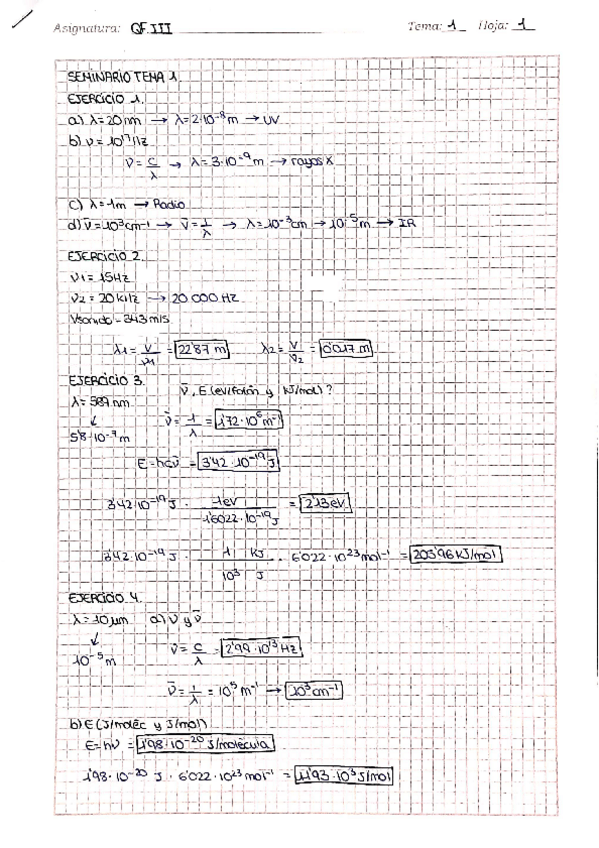 Asignatura: QF III Tema: 1 Hoja: 1
SEMINARIO TEMA 1.
EJERCICIO 1.
a) λ = 20 nm → λ = 2·10⁻⁸ m → UV
b) ν = 10¹⁷ Hz
ν = c/λ → λ = 3·10⁻⁹ m → rayos X
c) λ = 1m → Radio
d) ν̄ = 10³ cm⁻¹ → ν̄ = 1/λ → λ = 10⁻³ cm → 10⁻⁵ m → IR
EJERCICIO 2.
ν₁ = 15 Hz
ν₂ = 20 kHz → 20 000 Hz
Vsonido = 343 m/s
λ₁ = V/ν₁ = 22'87 m λ₂ = V/ν₂ = 0'017 m
EJERCICIO 3.
ν̄, E (eV/fotón y KJ/mol)?
λ = 589 nm
↓
5'8·10⁻⁷ m
ν̄ = 1/λ = 1'72·10⁶ m⁻¹
E = hcν̄ = 3'42·10⁻¹⁹ J
3'42·10⁻¹⁹ J · 1 eV / 1'6022·10⁻¹⁹ J = 2'13 eV
3'42·10⁻¹⁹ J · 1 KJ / 10³ J · 6'022·10²³ mol⁻¹ = 203'96 KJ/mol
EJERCICIO 4.
λ = 10 μm a) ν y ν̄
↓
10⁻⁵ m
ν = c/λ = 2'99·10¹³ Hz
ν̄ = 1/λ = 10⁵ m⁻¹ → 10³ cm⁻¹
b) E (J/moléc y J/mol)
E = hν = 1'98·10⁻²⁰ J/molécula
1'98·10⁻²⁰ J · 6'022·10²³ mol⁻¹ = 1'193·10³ J/mol